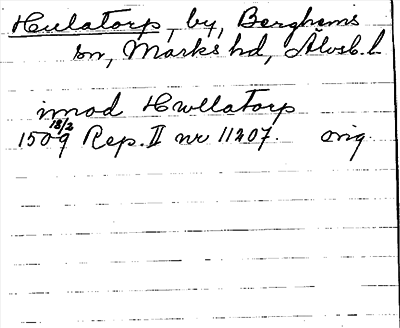 Hulatorp, by, Berghems
sn, Marks hd, Älvsb. l
imod Hwllatorp
1509 18/2 Rep. II nr 11207. orig.